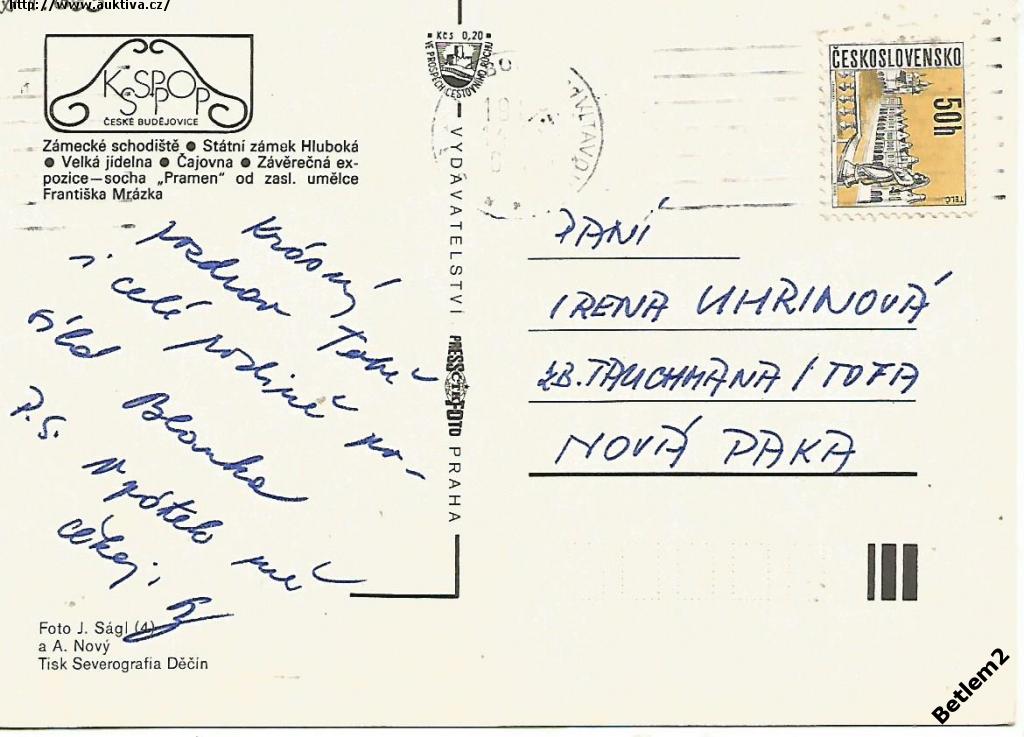 http://www.auktiva.cz/
KSSPPOP
ČESKÉ BUDĚJOVICE
Zámecké schodiště ● Státní zámek Hluboká
● Velká jídelna ● Čajovna ● Závěrečná ex-
pozice—socha „Pramen" od zasl. umělce
Františka Mrázka
Krásný
pozdrav Tobě
i celé rodině po-
sílá Blanka
P.S. V pátek mě
čekej!
Foto J. Ságl (4)
a A. Nový
Tisk Severografia Děčín
Kčs 0,20
VE PROSPĚCH CESTOVNÍHO RUCHU
VYDAVATELSTVÍ PRESSFOTO PRAHA
ČTK
ČESKOSLOVENSKO
50h
TELČ
PANÍ
IRENA UHRINOVÁ
ZB. TAUCHMANA / TOFA
NOVÁ PAKA
Betlem2